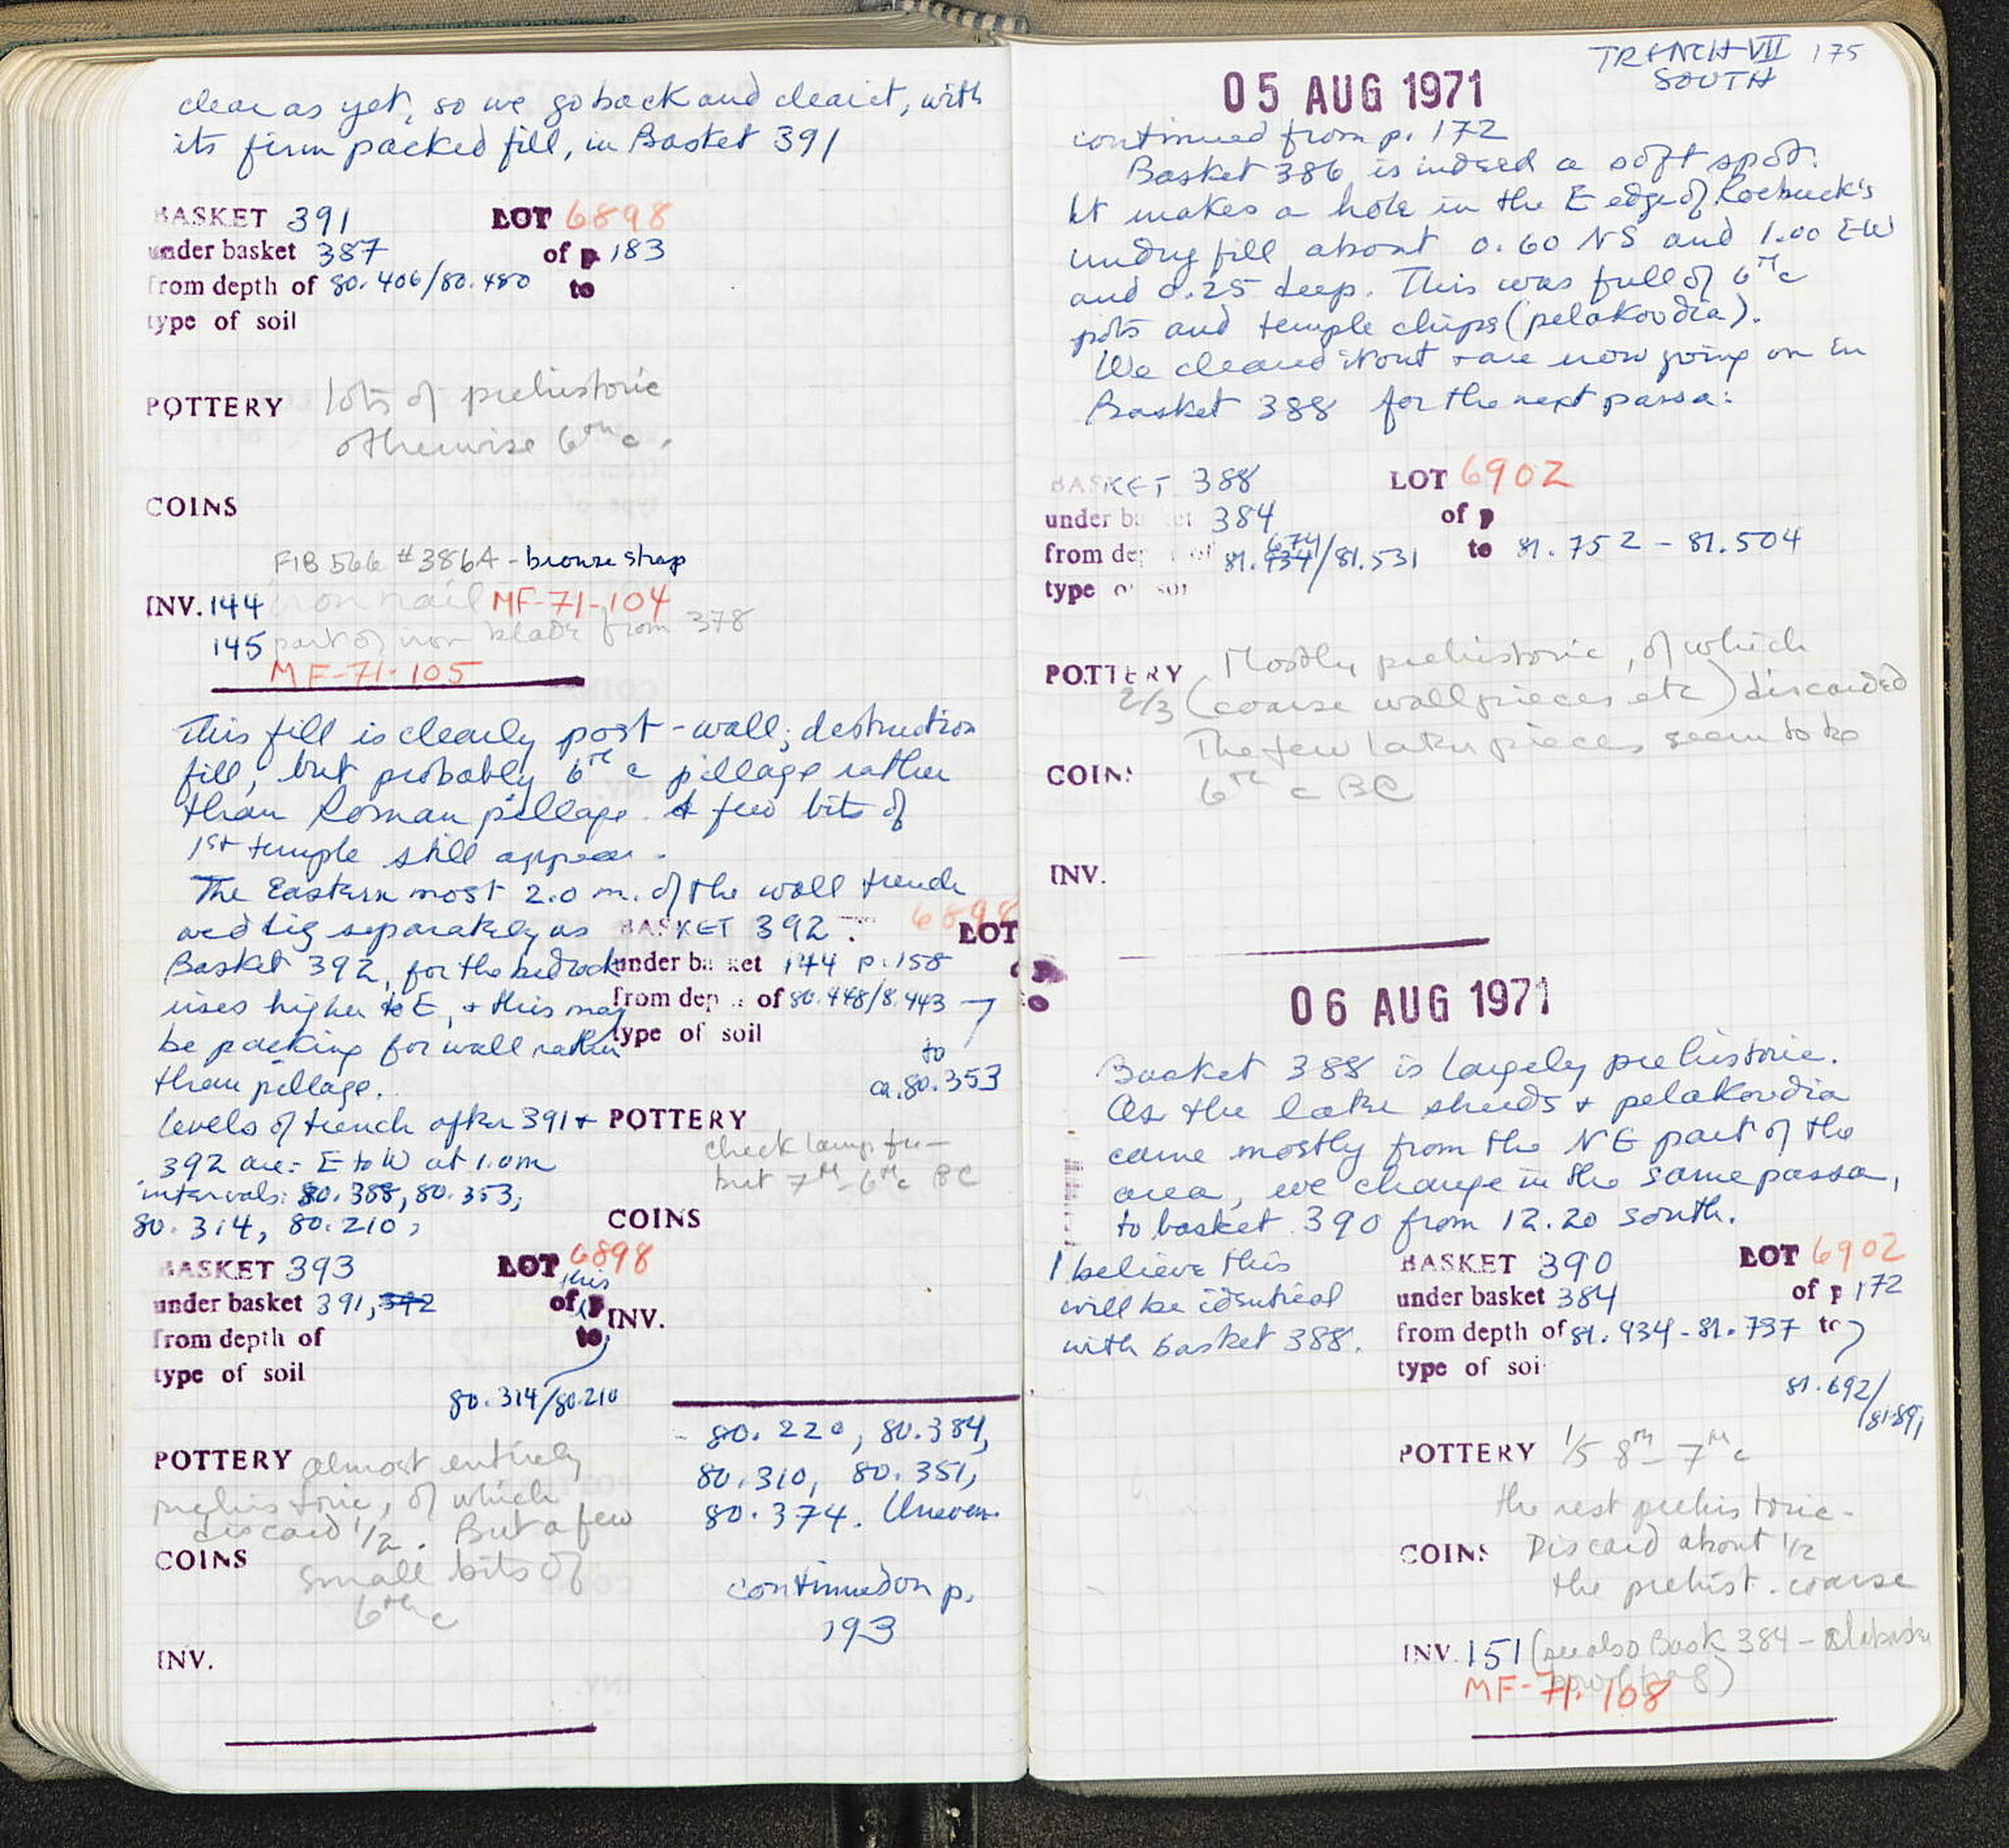 clear as yet, so we go back and clear it, with
its firm packed fill, in Basket 391
BASKET 391 LOT 6898
under basket 387 of p. 183
from depth of 80.406/80.480 to
type of soil
POTTERY lots of prehistoric
otherwise 6th c.
COINS
FIB 566 #386A - bronze strap
INV. 144 iron nail MF-71-104
145 part of iron blade from 378
MF-71-105
This fill is clearly post-wall; destruction
fill, but probably 6th c pillage rather
than Roman pillage. A few bits of
1st temple still appear.
The Eastern most 2.0 m. of the wall trench
we dig separately as
Basket 392, for the bedrock
rises higher to E, + this may
be packing for wall rather
than pillage.
levels of trench after 391 +
392 are: E to W at 1.0m
intervals: 80.388, 80.353,
80.314, 80.210,
BASKET 392 LOT 6898
under basket 144 p. 158
from dep of 80.448/8.443
type of soil
to
ca. 80.353
POTTERY
check lamp fr—
but 7th-6th c BC
COINS
INV.
BASKET 393 LOT 6898
under basket 391, 392 of this p
from depth of to
type of soil
80.314/80.210
POTTERY almost entirely
prehistoric, of which
discard 1/2. But a few
COINS small bits of
6th c
INV.
80.220, 80.384,
80.310, 80.351,
80.374. Uneven.
continued on p.
193
TRENCH VII 175
SOUTH
05 AUG 1971
continued from p. 172
Basket 386 is indeed a soft spot.
It makes a hole in the E edge of Roebuck's
undug fill about 0.60 NS and 1.00 E-W
and 0.25 deep. This was full of 6th c
pots and temple chips (pelakoudia).
We cleaned it out + are now going on in
Basket 388 for the next passa:
BASKET 388 LOT 6902
under ba et 384 of p
from dep of 81.934/81.531 to 81.752 - 81.504
674
type of soi
POTTERY Mostly prehistoric, of which
2/3 (coarse wall pieces etc) discarded
The few later pieces seem to be
COINS 6th c BC
INV.
06 AUG 1971
Basket 388 is largely prehistoric.
As the later sherds + pelakoudia
came mostly from the NE part of the
area, we change in the same passa,
to basket 390 from 12.20 south.
I believe this
will be identical
with basket 388.
BASKET 390 LOT 6902
under basket 384 of p 172
from depth of 81.934 - 81.737 to
type of soi
81.692/
81.891
POTTERY 1/5 8th - 7th c
the rest prehistoric -
COINS Discard about 1/2
the prehist. coarse
INV. 151 (see also Bask 384 -
MF-71-108